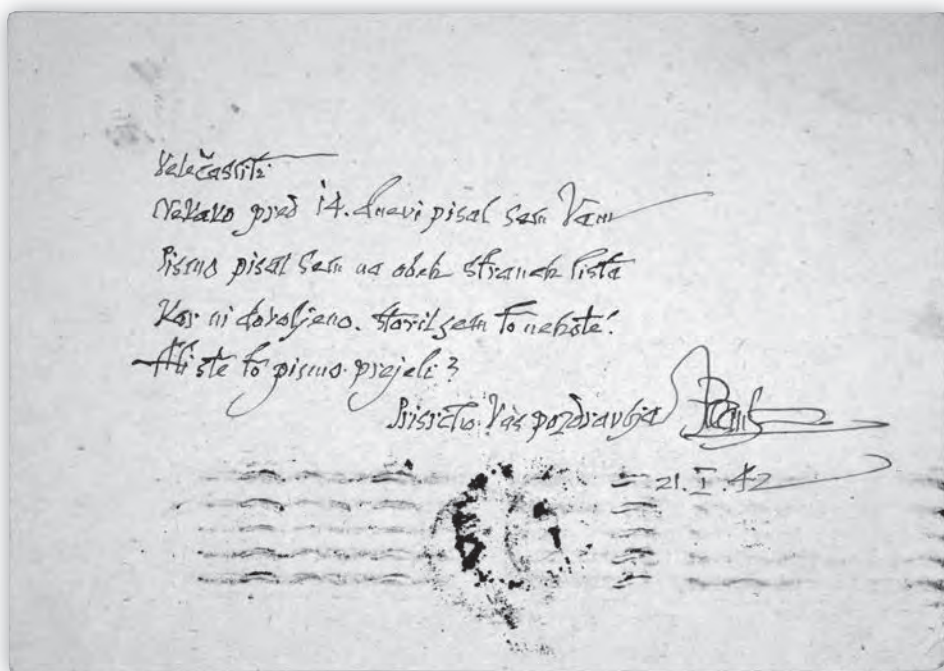 Velečastiti
Nekako pred 14. dnevi pisal sem Vam
Pismo pisal sem na obeh straneh lista
Kar ni dovoljeno. Storil sem to nehoté!
Ali ste to pismo prejeli?
Prisrčno Vas pozdravlja
21. I. 42